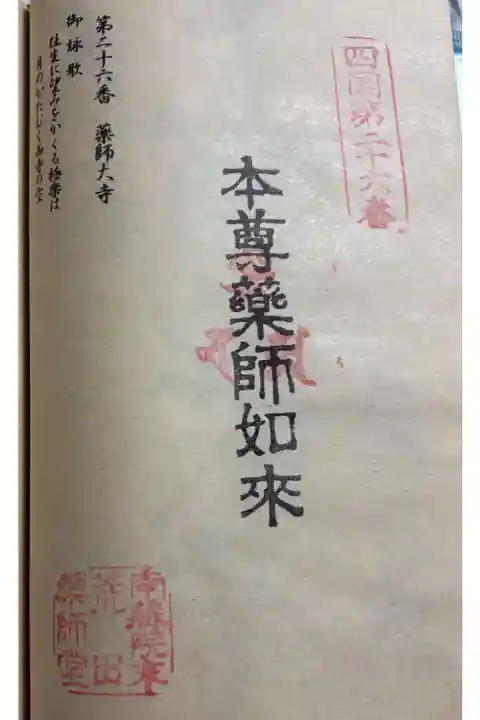 四国第二十六番
本尊薬師如来
第二十六番 薬師大寺
御詠歌
往生に望みをかくる極楽は
月のかたむく西寺の空
荒田
薬師堂